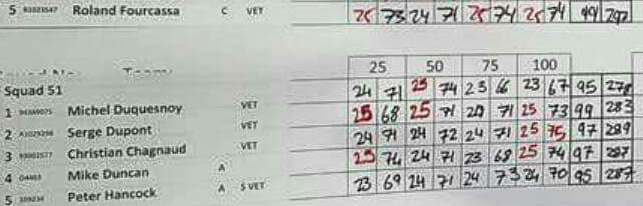 5 Roland Fourcassa C VET 25 73 24 71 25 74 25 74 99 292
25 50 75 100
Squad 51
1 Michel Duquesnoy VET 24 71 25 74 23 66 23 67 95 278
2 Serge Dupont VET 25 68 25 71 71 25 73 99 283
3 Christian Chagnaud VET 24 71 24 72 24 71 25 75 97 289
4 Mike Duncan A 25 74 24 71 23 68 25 74 97 287
5 Peter Hancock A S VET 23 69 24 71 24 73 24 70 95